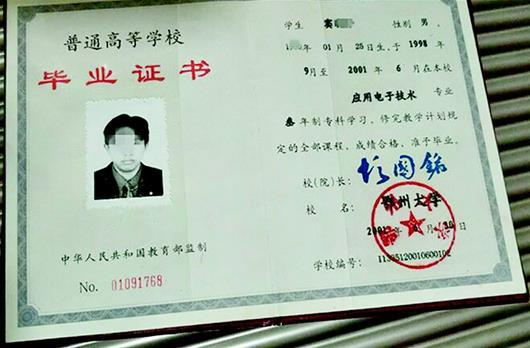 普通高等学校
毕业证书
中华人民共和国教育部监制
No. 01091768
学生 性别 男,
年 01 月 25 日生,于 1998 年
9 月至 2001 年 6 月在本校
应用电子技术 专业
叁年制专科学习,修完教学计划规
定的全部课程,成绩合格,准予毕业。
校(院)长:
校 名: 鄂州大学
2001 年 月 30 日
学校编号: